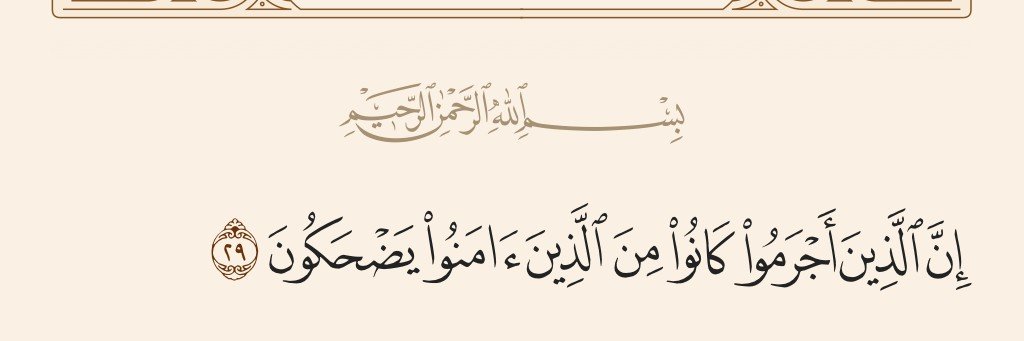 بِسْمِ ٱللَّهِ ٱلرَّحْمَٰنِ ٱلرَّحِيمِ
إِنَّ ٱلَّذِينَ أَجْرَمُوا۟ كَانُوا۟ مِنَ ٱلَّذِينَ ءَامَنُوا۟ يَضْحَكُونَ ٢٩